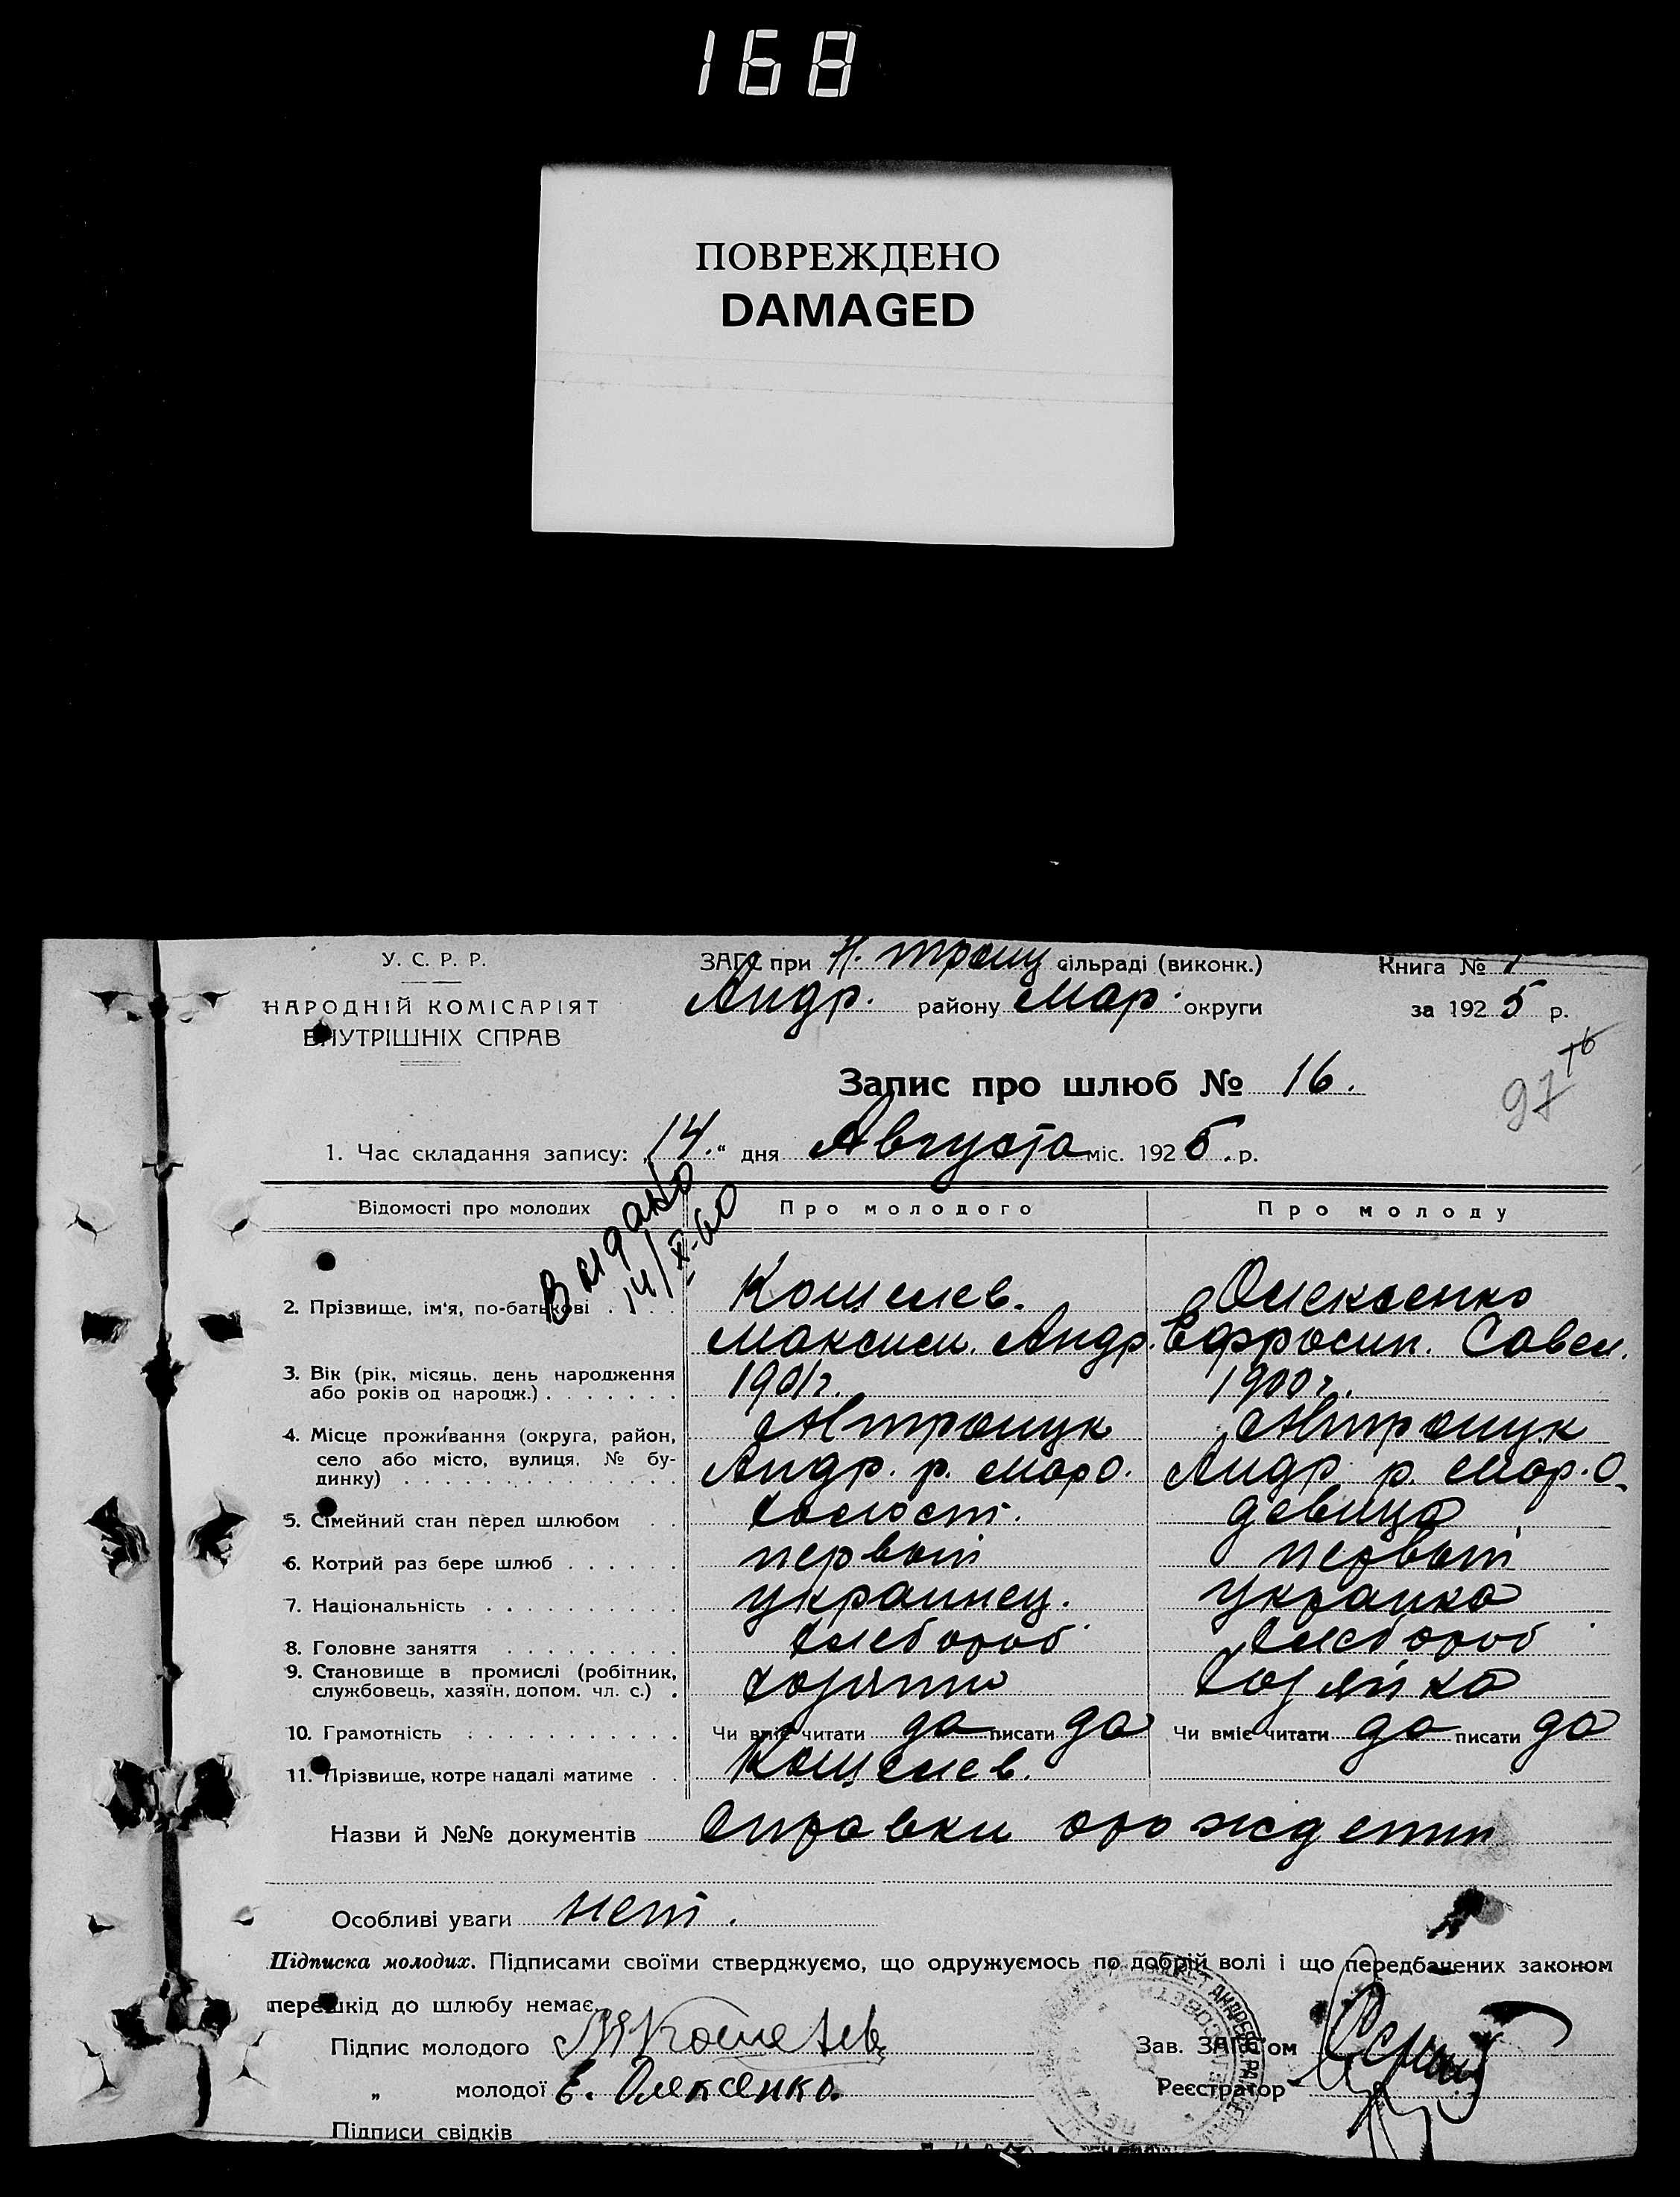 168
ПОВРЕЖДЕНО
DAMAGED
У. С. Р. Р.
НАРОДНІЙ КОМІСАРІЯТ
ВНУТРІШНІХ СПРАВ
ЗАГС при Н. Троиц сільраді (виконк.)
Андр. району Мар. округи
Книга № 1
за 1925 р.
97
16
Запис про шлюб № 16.
1. Час складання запису: „14.“ дня Августа міс. 1925. р.
Видано
14/X-60
Відомості про молодих
Про молодого
Про молоду
2. Прізвище, ім'я, по-батькові
Кошелев.
Максим. Андр.
Олексенко
Ефросин. Савел.
3. Вік (рік, місяць, день народження
або років од народж.)
1901 г.
1900 г.
4. Місце проживання (округа, район,
село або місто, вулиця, № бу-
динку)
Н троицк
Андр. р. Мар о.
Н троицк
Андр р. Мар. о.
5. Сімейний стан перед шлюбом
холост.
девица
6. Котрий раз бере шлюб
первый
первый
7. Національність
украинец.
украинка
8. Головне заняття
хлебороб
хлебороб
9. Становище в промислі (робітник,
службовець, хазяїн, допом. чл. с.)
хозяин
хозяйка
10. Грамотність
Чи вміє читати да писати да
Чи вміє читати да писати да
11. Прізвище, котре надалі матиме
Кошелев.
Назви й №№ документів справки о рождении
Особливі уваги нет.
Підписка молодих. Підписами своїми стверджуємо, що одружуємось по добрій волі і що передбачених законом
перешкід до шлюбу немає.
Підпис молодого Кошелев
„ молодої Е. Олексенко.
Підписи свідків
Зав. ЗАГС'ом
Реєстратор